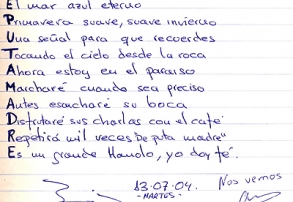 El mar azul eterno
Primavera suave, suave invierno
Una señal para que recuerdes
Tocando el cielo desde la roca
Ahora estoy en el paraiso
Marcharé cuando sea preciso
Antes escucharé su boca
Disfrutaré sus charlas con el café
Repetiré mil veces "De puta madre"
Es un grande Manolo, yo doy fé.
13.07.04. Nos vemos
- MARTES -